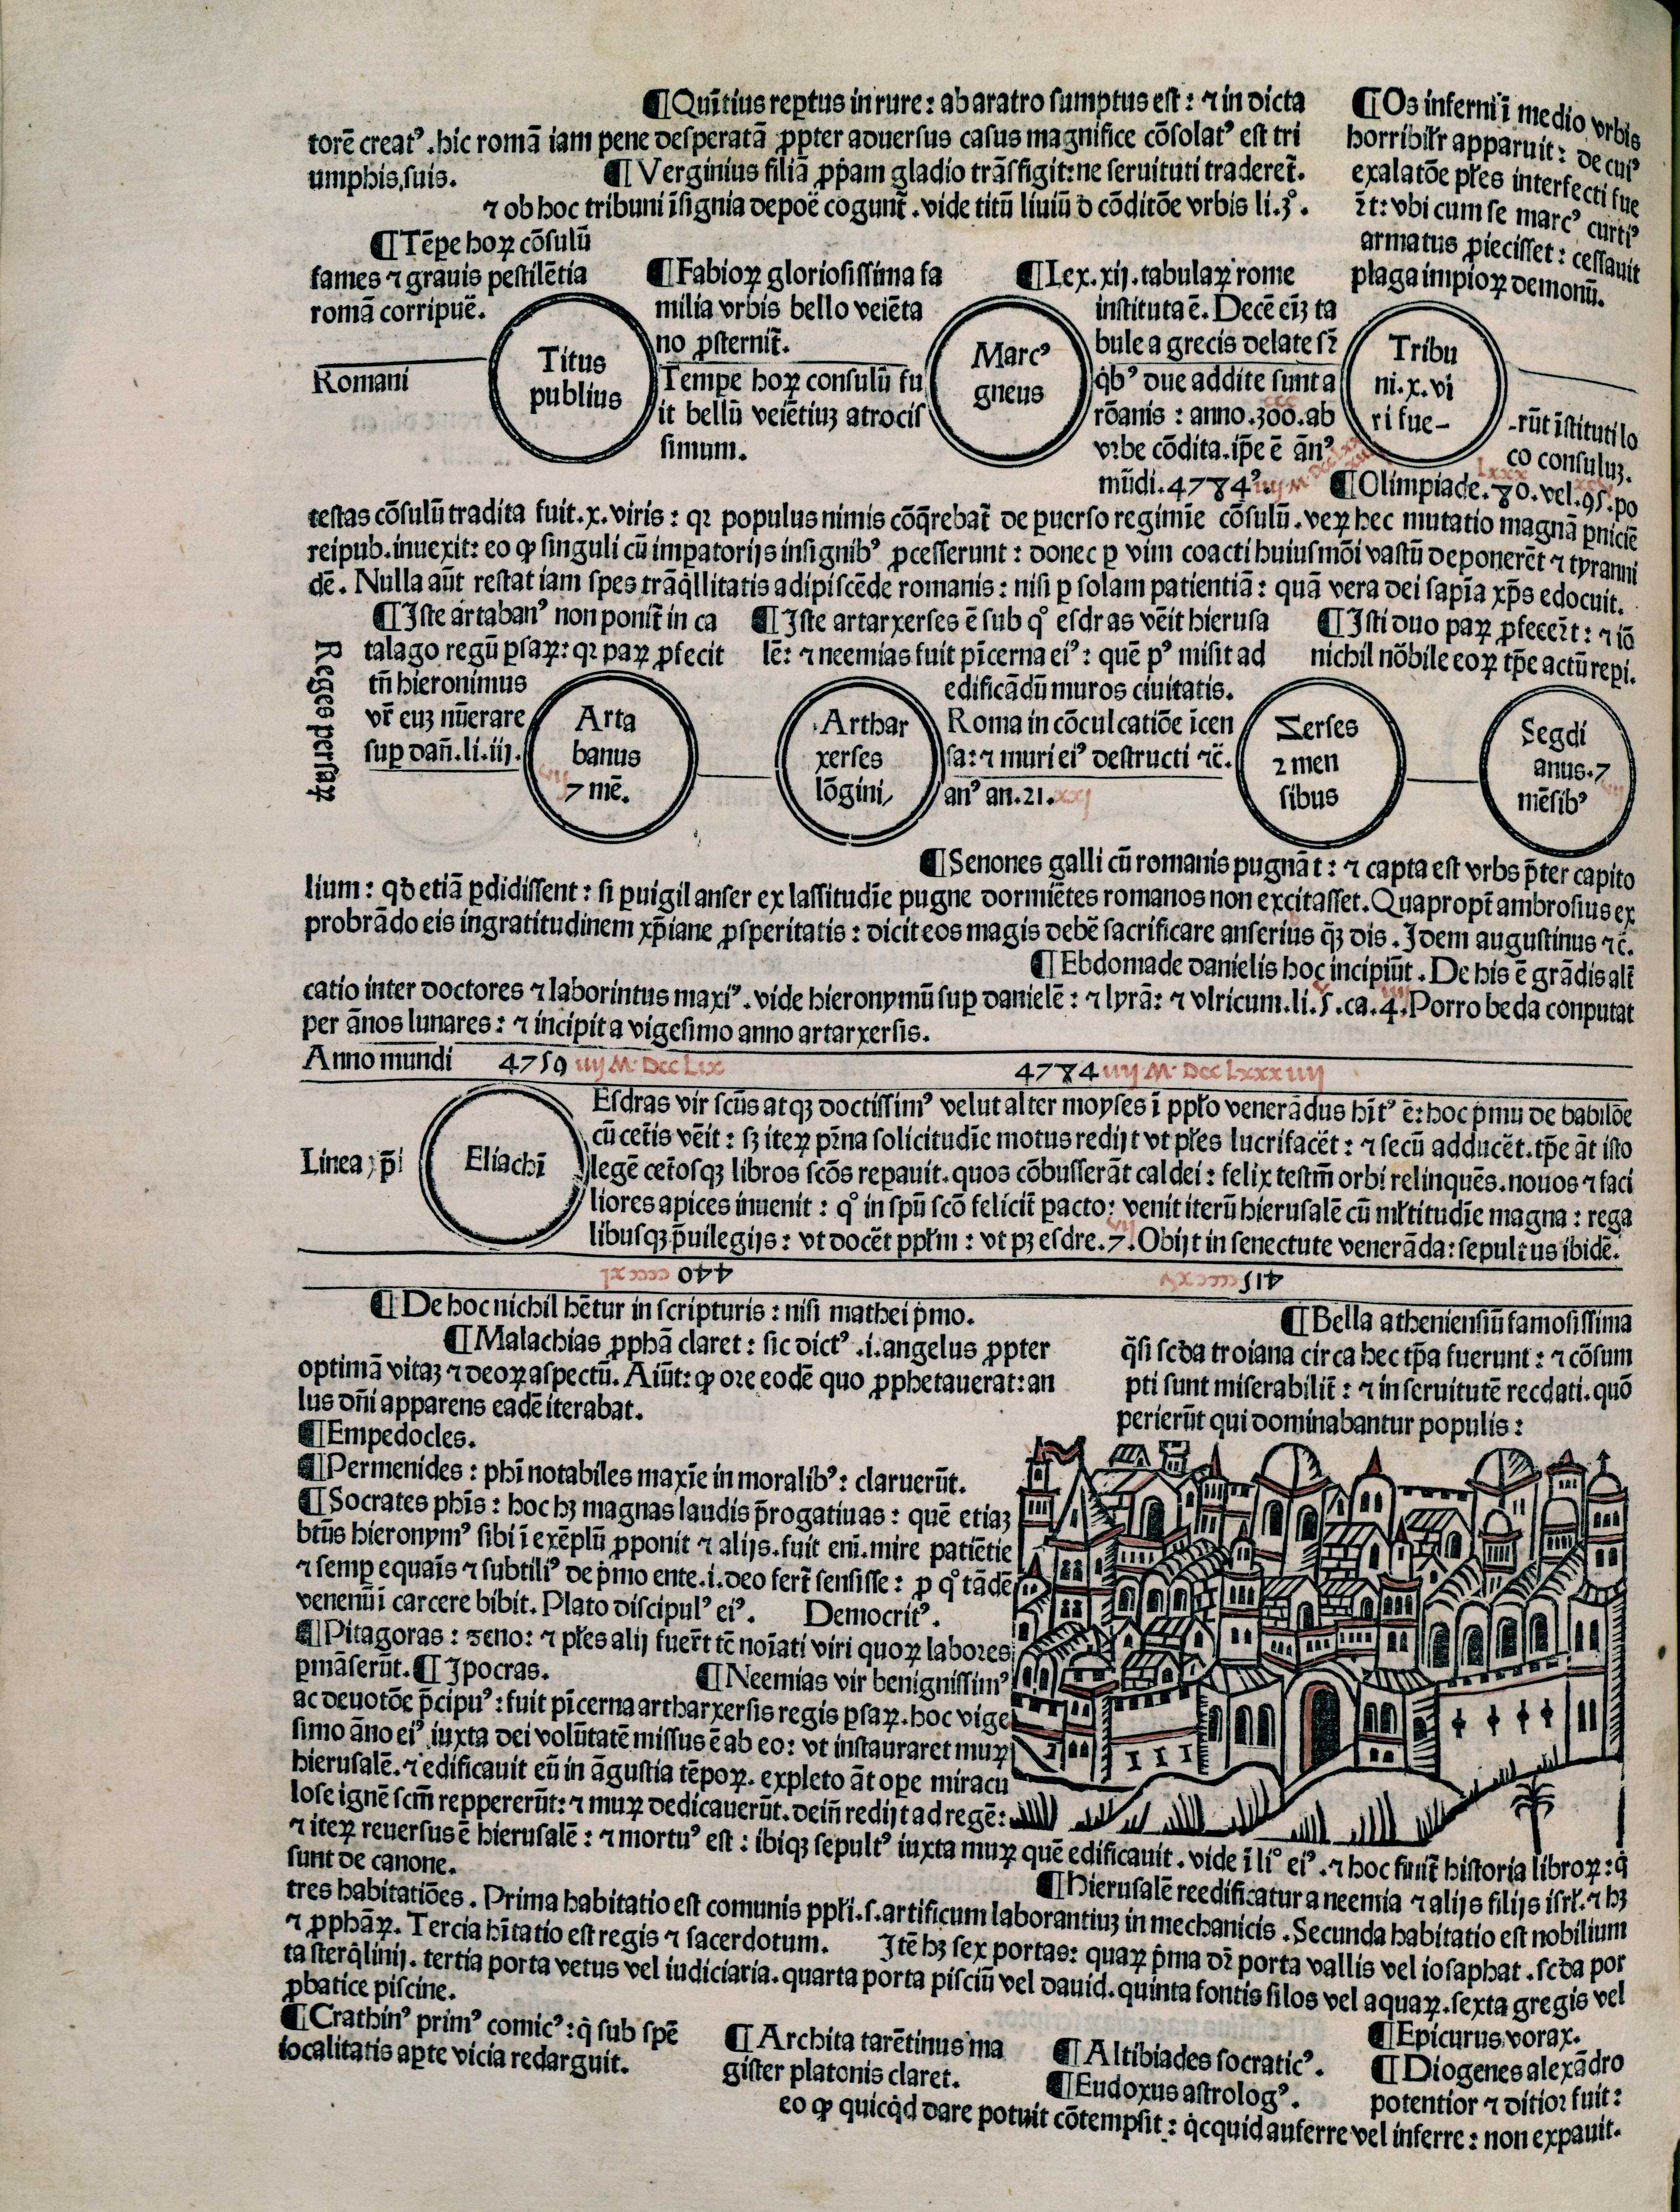 ¶Quītius reꝑtus in rure: ab aratro sumptus est: ⁊ in dicta
torē creatꝰ. hic romā iam pene desperatā ꝓpter aduersus casus magnifice cōsolatꝰ est tri
umphis suis. ¶Verginius filiā ꝓpam gladio trāsfigit: ne seruituti traderet̄.
⁊ ob hoc tribuni īsignia depoē cogunt̄. vide titū liuiū d̄ cōditōe vrbis li.3ꝰ.
¶Os inferni ī medio vrbis
horribilr̄ apparuit: de cuiꝰ
exalatōe ples interfecti fue
rt̄: vbi cum se marcꝰ curtiꝰ
armatus ꝓiecisset: cessauit
plaga impioꝝ demonū.
¶Tēpe hoꝝ cōsulū
fames ⁊ grauis pestilētia
romā corripuē.
¶Fabioꝝ gloriosissima fa
milia vrbis bello veiēta
no ꝓsternit̄.
¶Lex.xij.tabulaꝝ rome
instituta ē. Decē eīʒ ta
bule a grecis delate st̄
q̇bꝰ due addite sunt a
rōanis: anno.300.ab
vrbe cōdita.ip̄e ē ānꝰ
mūdi.4784ꝰ.
Romani
Titus
publius
Tempe hoꝝ consulū fu
it bellū veiētiuʒ atrocis
simum.
Marcꝰ
gneus
Tribu
ni.x.vi
ri fue-
-rūt īstituti lo
co consuluʒ.
¶Olimpiade.80.vel.95.po
testas cōsulū tradita fuit.x.viris: qꝛ populus nimis cōq̄rebat̄ de ꝑuerso regimīe cōsulū. veꝝ hec mutatio magnā ꝑniciē
reipub.inuexit: eo ꝙ singuli cū imperatorijs insignibꝰ ꝓcesserunt: donec ꝑ vim coacti huiusmōi vastū deponerēt ⁊ tyranni
dē. Nulla aūt restat iam spes trāq̇llitatis adipiscēde romanis: nisi ꝑ solam patientiā: quā vera dei sapīa xp̄s edocuit.
¶Iste artabanꝰ non ponit̄ in ca
talago regū ꝑsaꝝ: qꝛ paꝝ ꝓfecit
tn̄ hieronimus
vr̄ euʒ nūerare
suꝑ dan̄.li.iij.
¶Iste artarxerses ē sub qͦ esdras vēit hierusa
lē: ⁊ neemias fuit pīcerna eiꝰ: quē pꝰ misit ad
edificādū muros ciuitatis.
Roma in cōculcatiōe īcen
sa: ⁊ muri eiꝰ destructi ⁊c̄.
anꝰ an.21. xxj
¶Isti duo paꝝ ꝓfecert̄: ⁊ iō
nichil nōbile eoꝝ tp̄e actū reꝑi.
Reges persaꝝ
Arta
banus
7 mē.
Arthar
xerses
lōgini
Xerses
2 men
sibus
Segdi
anus.7
mēsibꝰ
¶Senones galli cū romanis pugnāt: ⁊ capta est vrbs p̄ter capito
lium: qd̄ etiā ꝑdidissent: si ꝑuigil anser ex lassitudīe pugne dormiētes romanos non excitasset. Quapropt̄ ambrosius ex
probrādo eis ingratitudinem xp̄iane ꝓsperitatis: dicit eos magis debē sacrificare anserius q̄ʒ dis. Idem augustinus ⁊c̄.
¶Ebdomade danielis hoc incipiūt. De his ē grādis alt̄
catio inter doctores ⁊ laborintus maxiꝰ. vide hieronymū suꝑ danielē: ⁊ lyrā: ⁊ vlricum.li.5.ca.4. Porro beda conputat
per ānos lunares: ⁊ incipit a vigesimo anno artarxersis.
Anno mundi 4759 iiij M. DCCLIX 4784 iiij M. DCCLxxxiiij
Linea xp̄i
Eliachī
Esdras vir scūs atqʒ doctissimꝰ velut alter moyses ī pplo venerādus hīt̄ꝰ ē: hoc p̄mu de babilōe
cū cet̄is vēit: sʒ iteꝝ pr̄na solicitudīe motus redijt vt ples lucrifacēt: ⁊ secū adducēt. tp̄e āt isto
legē cet̄osqʒ libros scōs reꝑauit. quos cōbusserāt caldei: felix testm̄ orbi relinquēs. nouos ⁊ faci
liores apices inuenit: qͦ in spū scō felicit̄ ꝑacto: venit iterū hierusalē cū mltitudīe magna: rega
libusqʒ p̄uilegijs: vt docēt pplm: vt pʒ esdre.7. Obijt in senectute venerāda: sepultus ibidē.
440 ccccxl 415 ccccxv
¶De hoc nichil hētur in scripturis: nisi mathei p̄mo.
¶Malachias ꝓphā claret: sic dictꝰ.i.angelus ꝓpter
optimā vitaʒ ⁊ deoꝝ aspectū. Aiūt: ꝙ ore eodē quo ꝓphetauerat: an
lus dn̄i apparens eadē iterabat.
¶Bella atheniensiū famosissima
q̄si scd̄a troiana circa hec tp̄a fuerunt: ⁊ cōsum
pti sunt miserabilit̄: ⁊ in seruitutē recdati. quō
perierūt qui dominabantur populis:
¶Empedocles.
¶Permenides: phī notabiles maxīe in moralibꝰ: claruerūt.
¶Socrates phīs: hoc hʒ magnas laudis p̄rogatiuas: quē etiaʒ
btūs hieronymꝰ sibi ī exēplū ꝓponit ⁊ alijs. fuit eni.mire patiētie
⁊ semꝑ equaīs ⁊ subtiliꝰ de p̄mo ente.i.deo fert̄ sensisse: ꝓ qͦ tādē
venenū ī carcere bibit. Plato discipulꝰ eiꝰ. Democritꝰ.
¶Pitagoras: zeno: ⁊ ples alij fuert̄ tē noīati viri quoꝝ labores
ꝑmāserūt. ¶Ipocras. ¶Neemias vir benignissimꝰ
ac deuotōe p̄cipuꝰ: fuit pīcerna artharxersis regis ꝑsaꝝ. hoc vige
simo āno eiꝰ iuxta dei volūtatē missus ē ab eo: vt instauraret muꝝ
hierusalē. ⁊ edificauit eū in āgustia tēpoꝝ. expleto āt ope miracu
lose ignē scm̄ reppererūt: ⁊ muꝝ dedicauerūt. dein̄ redijt ad regē:
⁊ iteꝝ reuersus ē hierusalē: ⁊ mortuꝰ est: ibiqʒ sepultꝰ iuxta muꝝ quē edificauit. vide ī liͦ eiꝰ. ⁊ hoc finit̄ historia libroꝝ: q̇
sunt de canone. ¶Hierusalē reedificatur a neemia ⁊ alijs filijs isrl. ⁊ hʒ
tres habitatiōes. Prima habitatio est comunis ppli.s.artificum laborantiuʒ in mechanicis. Secunda habitatio est nobilium
⁊ ꝓphāꝝ. Tercia hītatio est regis ⁊ sacerdotum. Itē hʒ sex portas: quaꝝ p̄ma dr̄ porta vallis vel iosaphat. scd̄a por
ta sterq̇linij. tertia porta vetus vel iudiciaria. quarta porta pisciū vel dauid. quinta fontis silos vel aquaꝝ. sexta gregis vel
ꝓbatice piscine.
¶Crathinꝰ primꝰ comicꝰ: q̇ sub spē
iocalitatis aꝑte vicia redarguit.
¶Archita tarētinus ma
gister platonis claret.
¶Altibiades socraticꝰ.
¶Eudoxus astrologꝰ.
¶Epicurus vorax.
¶Diogenes alexādro
potentior ⁊ ditior fuit:
eo ꝙ quicq̇d dare potuit cōtempsit: q̇cquid auferre vel inferre: non expauit.